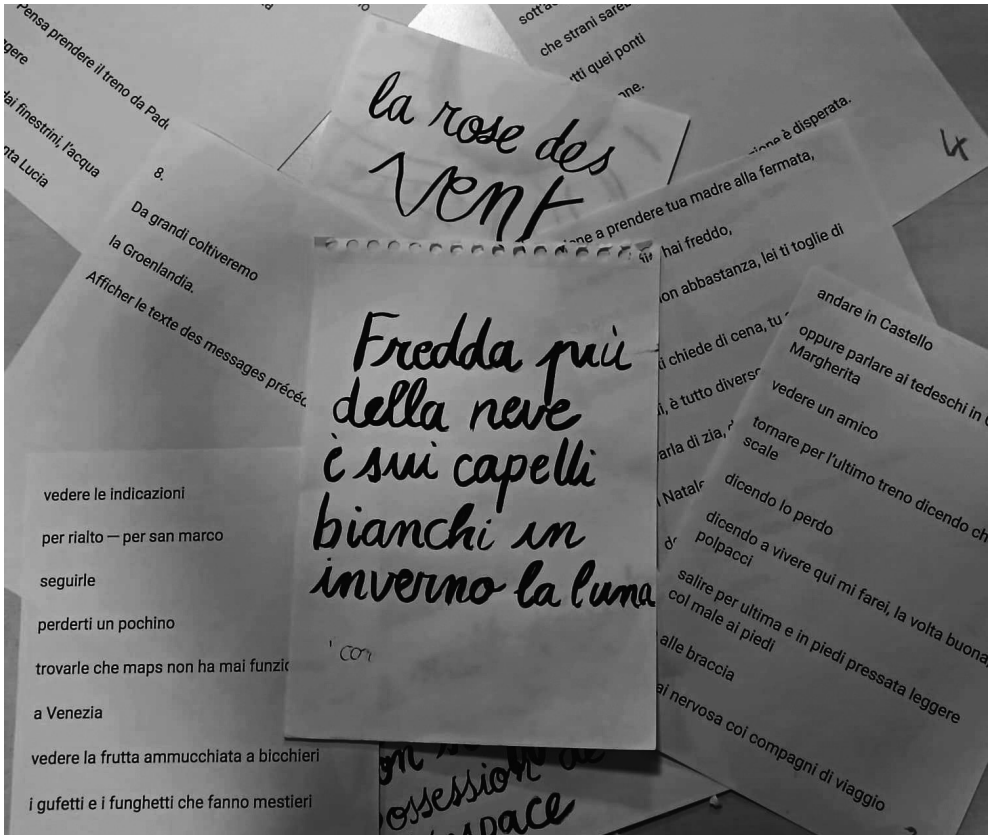 Pensa prendere il treno da
dai finestrini, l'acqua
Lucia
che strani
quei ponti
è disperata.
4
la rose des
Vent
8.
Da grandi coltiveremo
la Groenlandia.
Afficher le texte des messages
a prendere tua madre alla fermata,
hai freddo,
abbastanza, lei ti toglie di
chiede di cena, tu
è tutto
di zia,
Natale
Fredda più
della neve
è sui capelli
bianchi in
inverno la luna
andare in Castello
oppure parlare ai tedeschi in
Margherita
vedere un amico
tornare per l'ultimo treno dicendo
scale
dicendo lo perdo
dicendo a vivere qui mi farei, la volta buona,
polpacci
salire per ultima e in piedi pressata leggere
col male ai piedi
alle braccia
nervosa coi compagni di viaggio
vedere le indicazioni
per rialto — per san marco
seguirle
perderti un pochino
trovarle che maps non ha mai
a Venezia
vedere la frutta ammucchiata a bicchieri
i gufetti e i funghetti che fanno mestieri